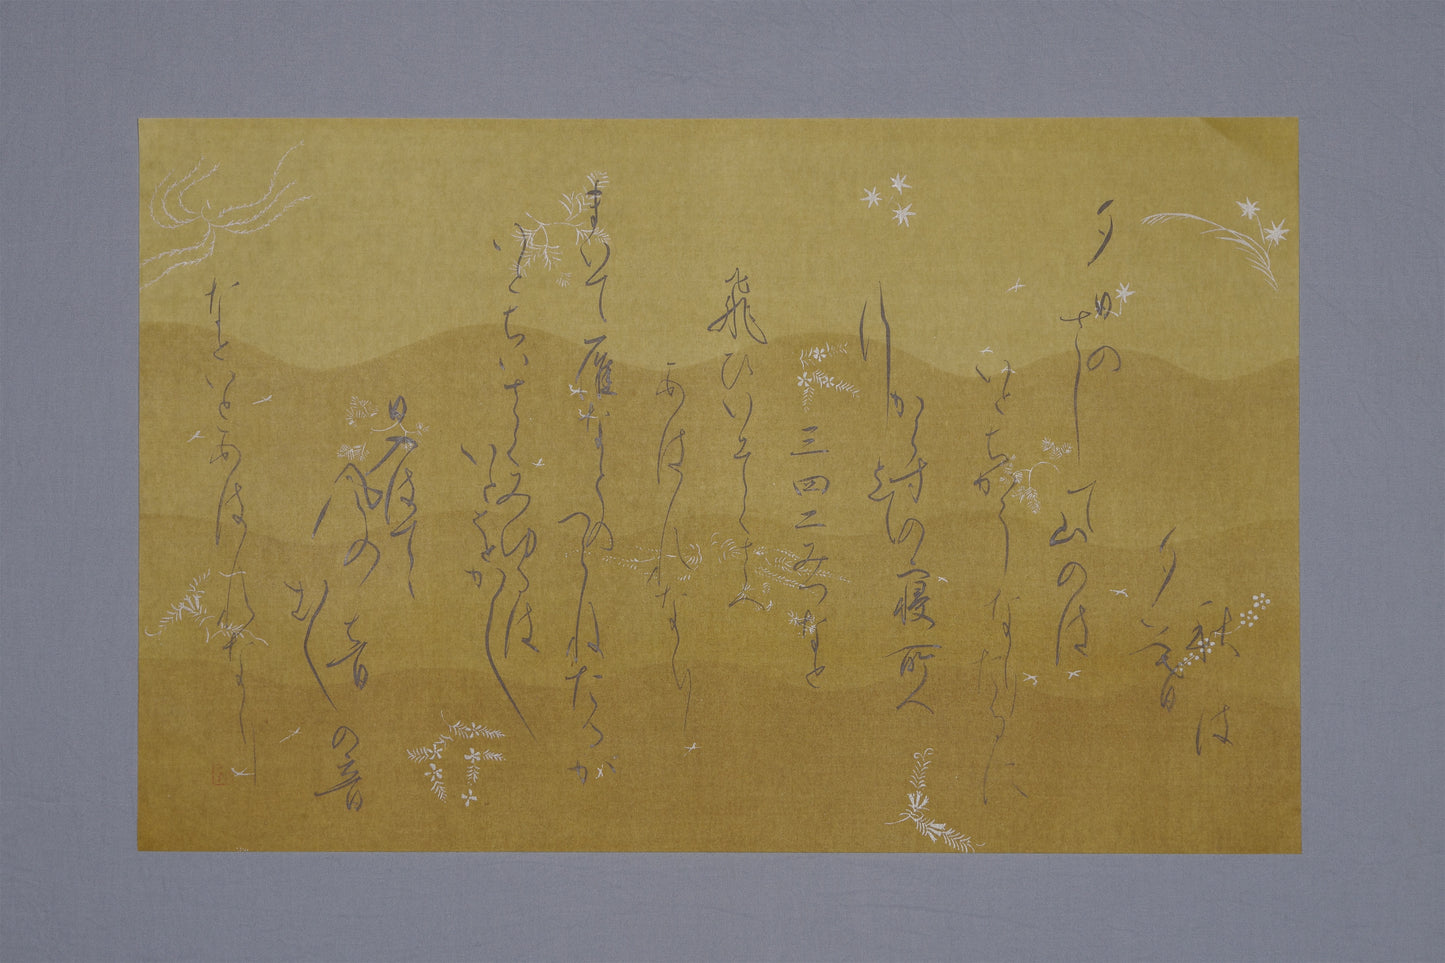 秋は
夕暮
夕日の
さして山のは
いとちかくなりたるに
からすの寝所へ
行とて
三四二みつなと
飛ひいそくさへ
あはれなり
まいて雁なとの
つらねたるか
いとちいさくみゆるは
いとをかし
日入はてて
風の音
むしの音
なといとあはれなり